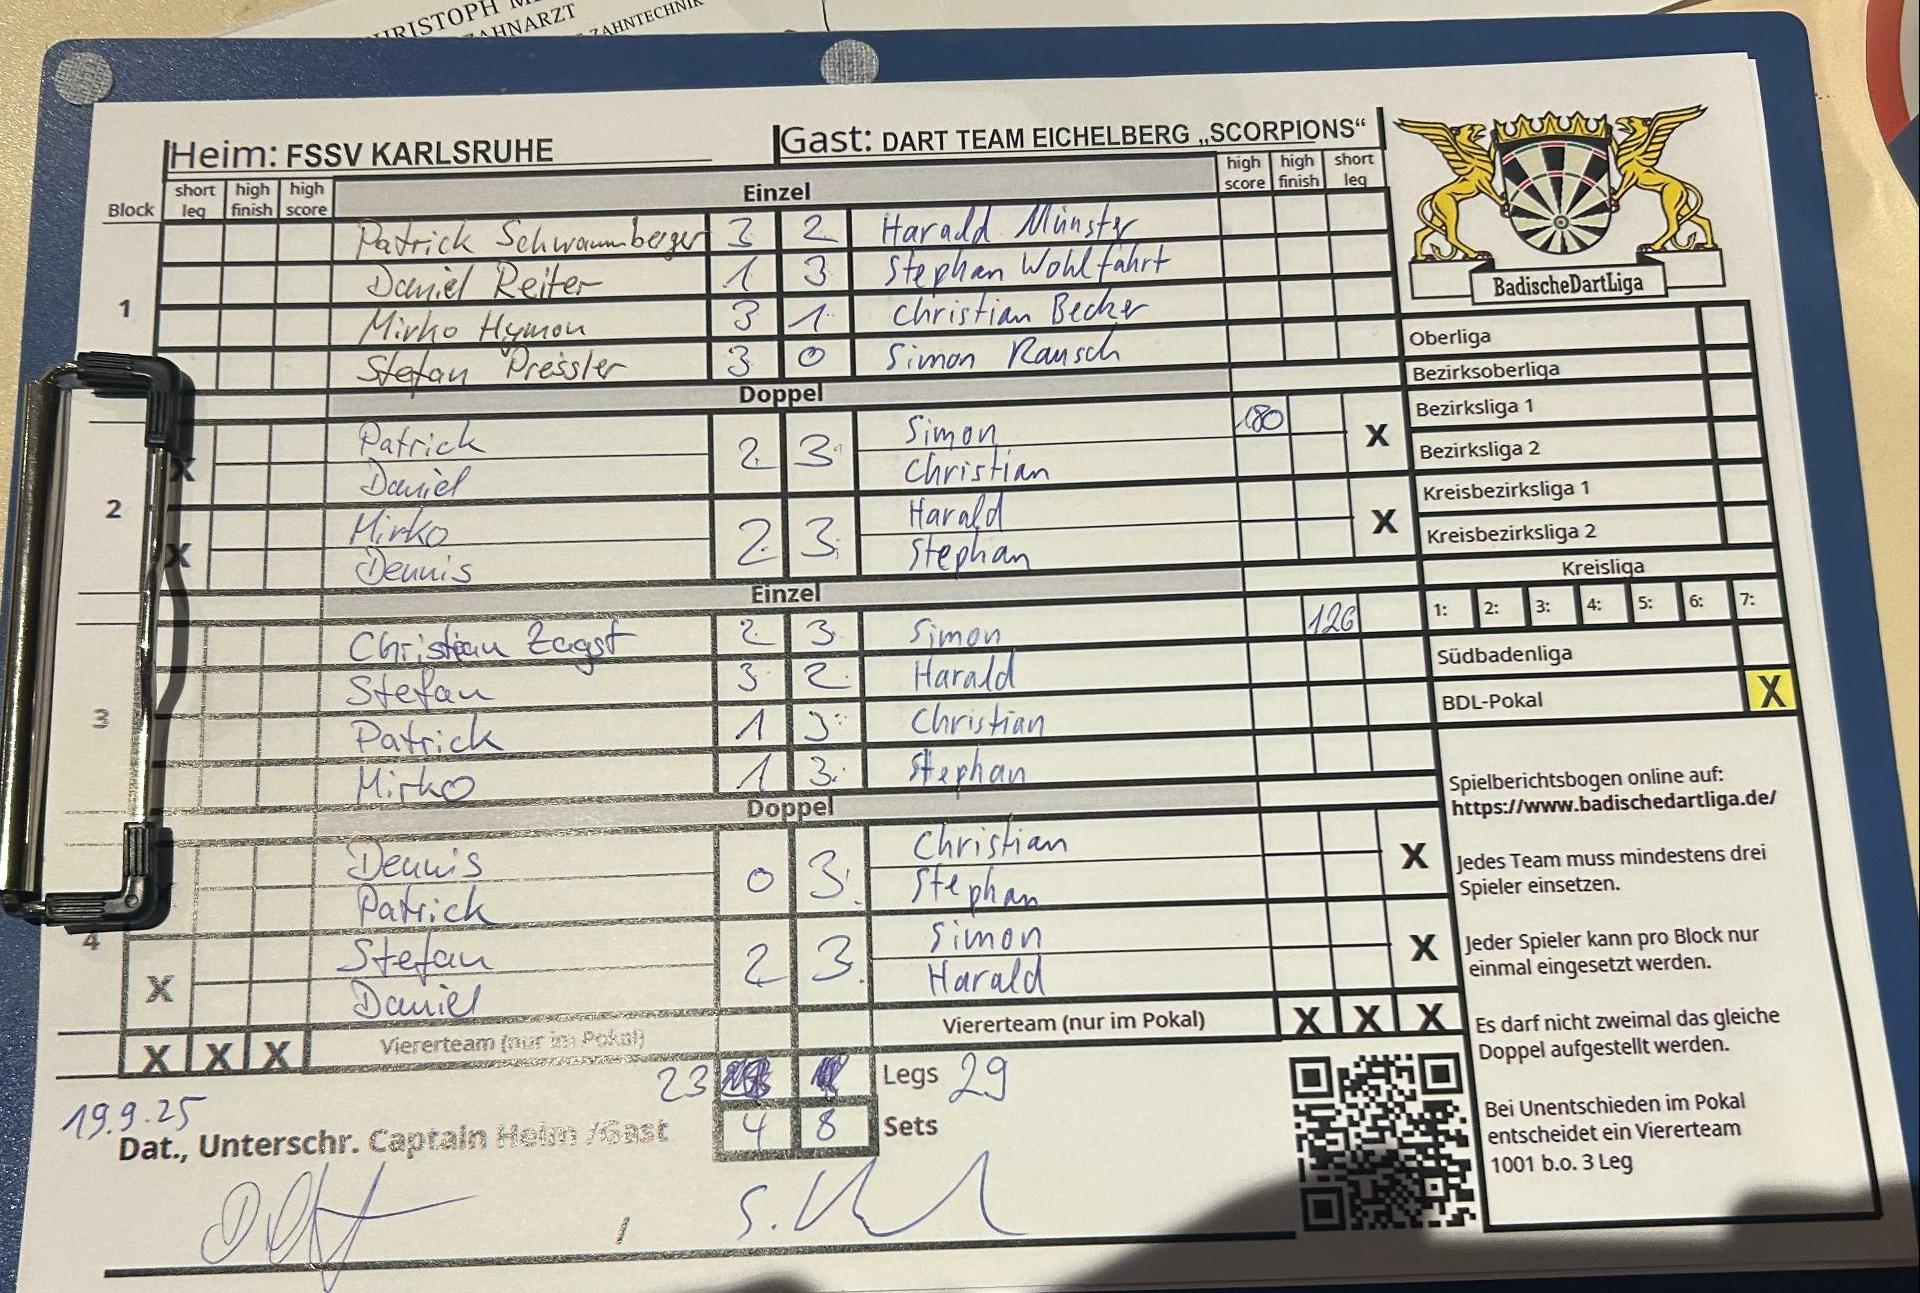 CHRISTOPH
ZAHNARZT
ZAHNTECHNIK
Heim: FSSV KARLSRUHE Gast: DART TEAM EICHELBERG „SCORPIONS“
Block short leg high finish high score Einzel high score high finish short leg
1
Patrick Schwammberger 3 2 Harald Münster
Daniel Reiter 1 3 Stephan Wohlfahrt
Mirko Hymon 3 1 Christian Becker
Stefan Pressler 3 0 Simon Rausch
Doppel
2
Patrick Simon 180
X 2 3 X
Daniel Christian
Mirko Harald
X 2 3 X
Dennis Stephan
Einzel
3
Christian Zagst 2 3 Simon 126
Stefan 3 2 Harald
Patrick 1 3 Christian
Mirko 1 3 Stephan
Doppel
4
Dennis Christian
0 3 X
Patrick Stephan
Stefan Simon
X 2 3 X
Daniel Harald
X X X Viererteam (nur im Pokal) Viererteam (nur im Pokal) X X X
23 Legs 29
4 8 Sets
19.9.25
Dat., Unterschr. Captain Heim /Gast
/
BadischeDartLiga
Oberliga
Bezirksoberliga
Bezirksliga 1
Bezirksliga 2
Kreisbezirksliga 1
Kreisbezirksliga 2
Kreisliga
1: 2: 3: 4: 5: 6: 7:
Südbadenliga
BDL-Pokal X
Spielberichtsbogen online auf:
https://www.badischedartliga.de/
Jedes Team muss mindestens drei
Spieler einsetzen.
Jeder Spieler kann pro Block nur
einmal eingesetzt werden.
Es darf nicht zweimal das gleiche
Doppel aufgestellt werden.
Bei Unentschieden im Pokal
entscheidet ein Viererteam
1001 b.o. 3 Leg